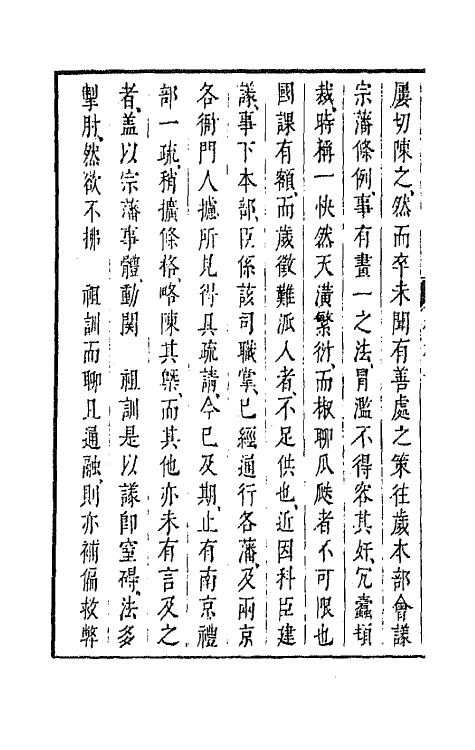 屢切陳之然而卒未聞有善處之策往歲本部會議
宗藩條例事有畫一之法冒濫不得容其奸冗蠹頓
裁時稱一快然天潢繁衍而椒聊瓜瓞者不可限也
國課有額而歲徵難派人者不足供也近因科臣建
議事下本部臣係該司職掌已經通行各藩及兩京
各衙門人攄所見得具疏請今已及期止有南京禮
部一疏稍擴條格略陳其槩而其他亦未有言及之
者蓋以宗藩事體動関　祖訓是以議即窒碍法多
掣肘然欲不拂　祖訓而聊且通融則亦補偏救弊